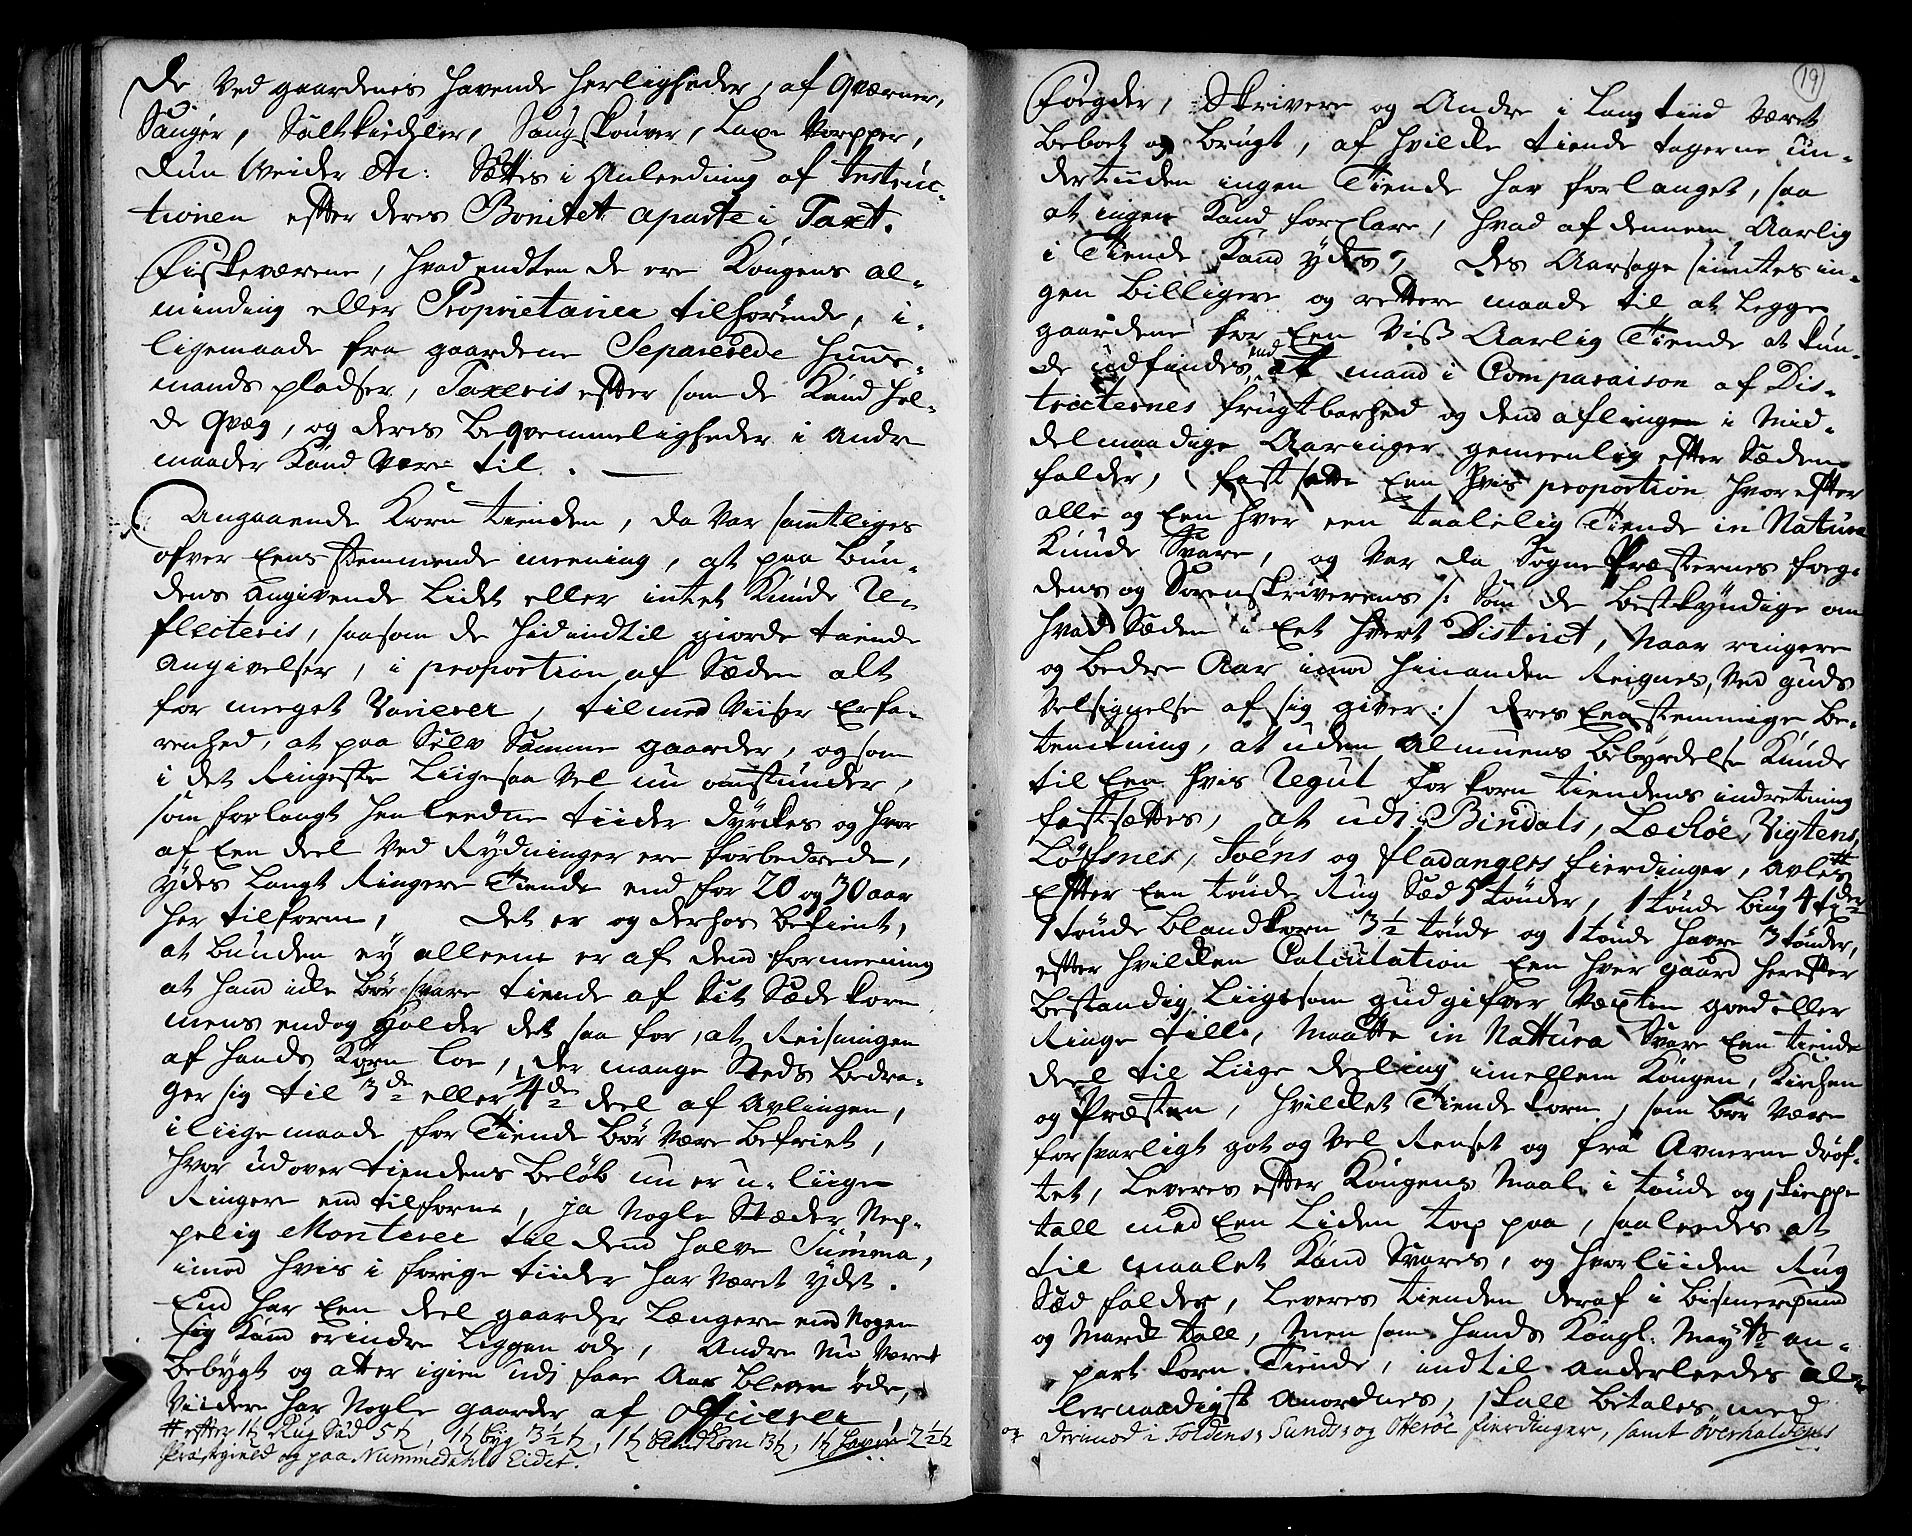 De ved gaardenes havende herligheder, af qværner,
Sauger, Saltkiedler, Saugskouver, Laxe Vorpper,
Dun Weider etc: Sættes i Anleedning af Instruc-
tionen efter deres Bonitet aparte i Taxt.
Fiskeværene, hvad endten de ere Kongens al-
minding eller Proprietarier tilhørende, i-
ligemaade fra gaardene Separerede huus-
mands pladser, Taxeris efter som de Kand hol-
de qvæg, og deres beqvemmeligheder i andre
maader Kand være til.
Angaaende Korn tienden, da var samtliges
ofver Eens stemmende meening, at paa bun-
dens angivende lidet eller intet Kunde Re-
flecteris, saasom de hidindtil giorde tiende
angivelser, i proportion af Sæden alt
for meeget Varierer, tilmed Viiser Erfa-
renhed, at paa Selv Samme gaarder, og som
i det Ringeste liigesaa vel nu omstunder,
som for langt hen leedne tiider dyrckes og hvor
af Een deel ved Rydninger ere forbedrede,
ydes langt Ringere Tiende end for 20 og 30 aar
her tilforne, Det er og derhos befient,
at bunden ey alleene er af dend formeening
at hand icke bør svare tiende af sit Sæde korn
mens endog holder det saa for, at Reisningen
af hands Korn loe, der mange Steds bedra-
ger sig til 3de eller 4de deel af Avlingen,
i liige maade for Tiende bør være befriet,
hvor udover tiendens beløb nu er u-liige
Ringere end tilforne, ja nogle Stæder Nep-
pelig Monterer til dend halve Summa,
imod hvis i forige tiider har været ydet.
End har Een deel gaarder længere end nogen
sig Kand erindre liggen øde, Andre nu været
bebygt og atter igien udi faae Aar bleven øde,
Viidere har Nogle gaarder af Officerer
# efter 1 t Rug Sæd 5 t, 1 t byg 3½ t, 1 t blandkorn 3 t, 1 t havre 2½ t
Præstegield og paa Nummedahls Eidet.
19
Foigder, Skrivere og Andre i lang tiid været
beboet og brugt, af hvilcke tiende tagerne un-
dertiiden ingen Tiende har forlanget, saa
at ingen Kand forclare, hvad af dennem Aarlig
i Tiende Kand ydes, Des Aarsage siuntes in-
gen billigere og rettere maade til at legge
gaardene for Een Viss Aarlig Tiende at kun-
de udfindes, end at mand i Comparaison af Dis-
tricternes frugtbarhed og dend aflingen i mid-
delmaadige Aaringer gemeenlig efter Sæden
falder, fast satte Een hvis proportion hvor efter
alle og Een hver een taalelig Tiende in Natura
Kunde Svare, og var da Sogne Præsternes foeg-
dens og Sorenskriverens /: Som de best kyndige om
hvad Sæden i Eet hvert District, naar ringere
og bedre Aar imod hinanden Reignes, ved guds
velsignelse af sig giver :/ deres Eenstemmige be-
tenckning, at uden almuens bebyrdelse Kunde
til Een hvis Regul for korn tiendens indretning
fastsættes, at udi Bindals, Leckøe, Vigtens,
Løfsnes, Foens og fladangers fierdinger, avles
Efter Een tønde Rug Sæd 5 tønder, 1 tønde biug 4 tdr
1 tønde blandkorn 3½ tønde og 1 tønde havre 3 tønder,
efter hvilcken Calculation Een hver gaard herefter
bestandig, liigesom gud gifver vexten goed eller
Ringe till, maatte in Nattura Svare Een tiende
deel til liige deeling imellem Kongen, Kirchen
og Præsten, hvilcket Tiende korn, som bør være
forsvarligt got og vel Renset og fra Avnerne drøf-
tet, leveres efter Kongens Maal i tønde og skieppe
tall med Een liden top paa, saaleedes at
til maalet Kand Svares, og hvor liiden Rug
Sæd falder, leveres tienden deraf i bismerpund
og march tall, men som hands Kongl: Mayts an-
part korn Tiende, indtil anderleedes al-
lernaadigst anordnes, skall betales med
og dermod i Foldens, Sunds og Otterøe fierdinger, samt Øverhaldens